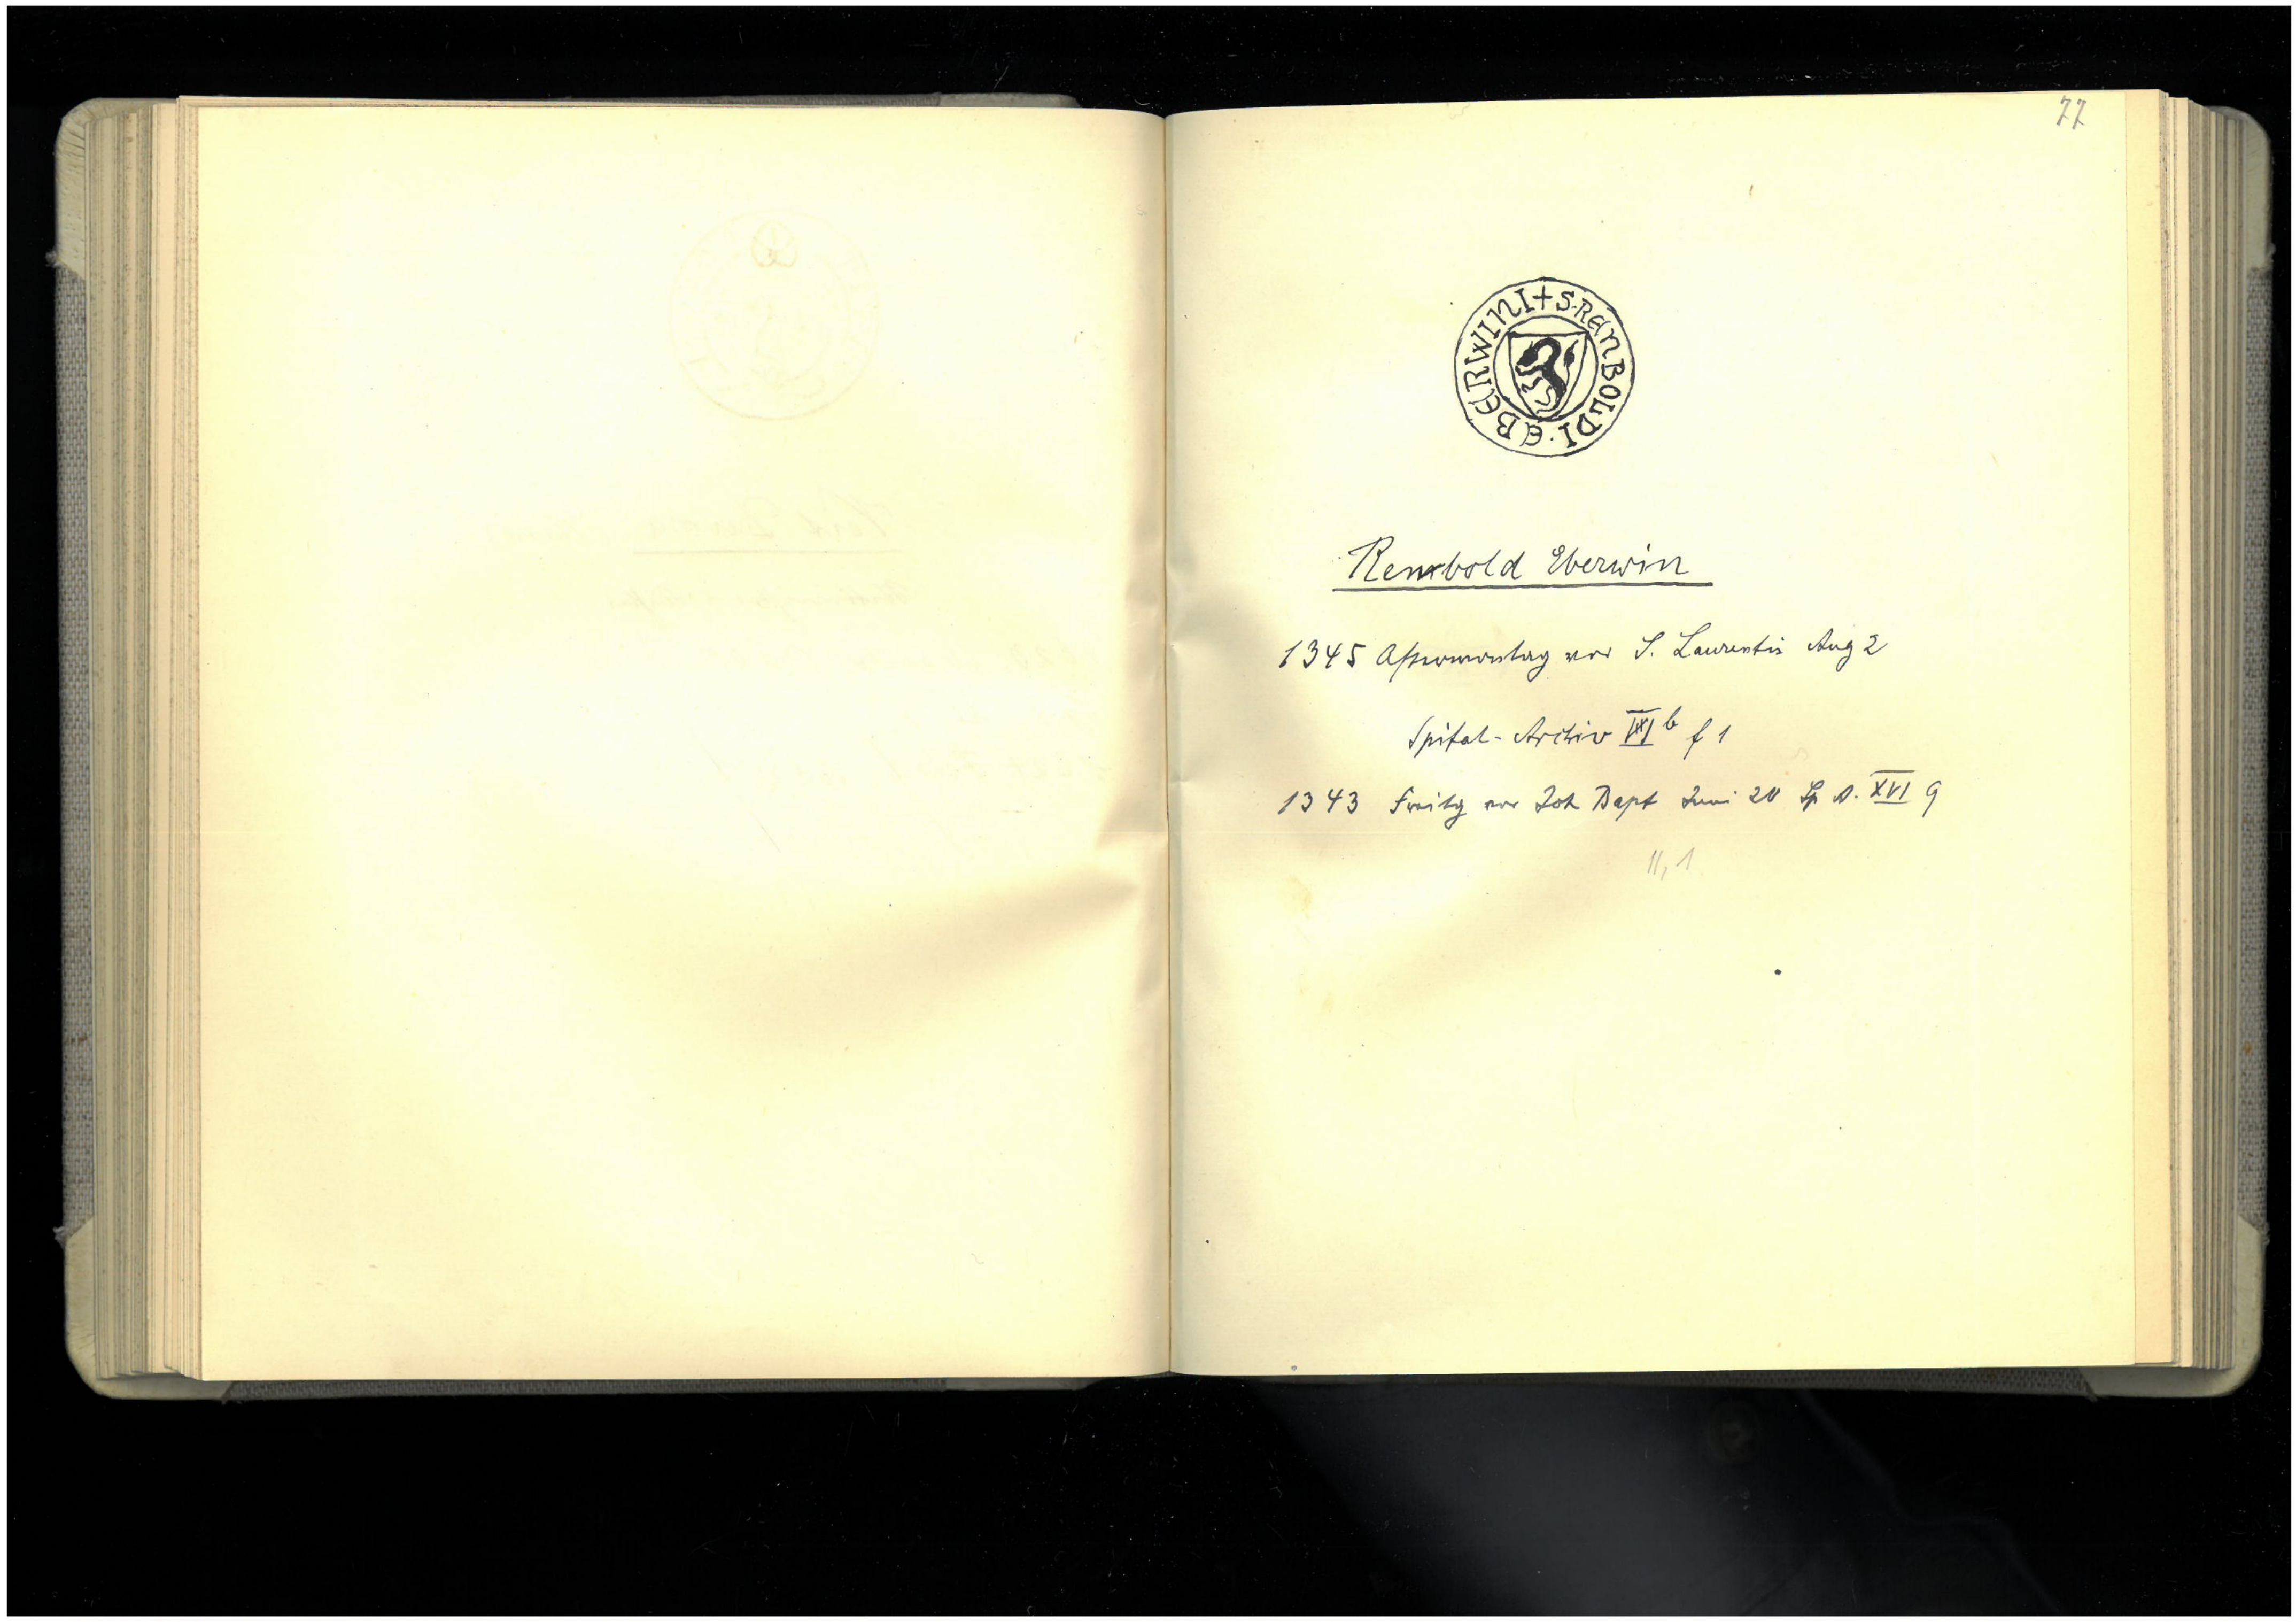 77
+ S. RENBOLDI · EBERWINI
Renbold Eberwin
1345 Aftermontag vor S. Laurentis Aug 2
Spital-Archiv b f 1
1343 Freitg vor Joh Bapt Juni 20 Sp A. XVI 9
11, 1